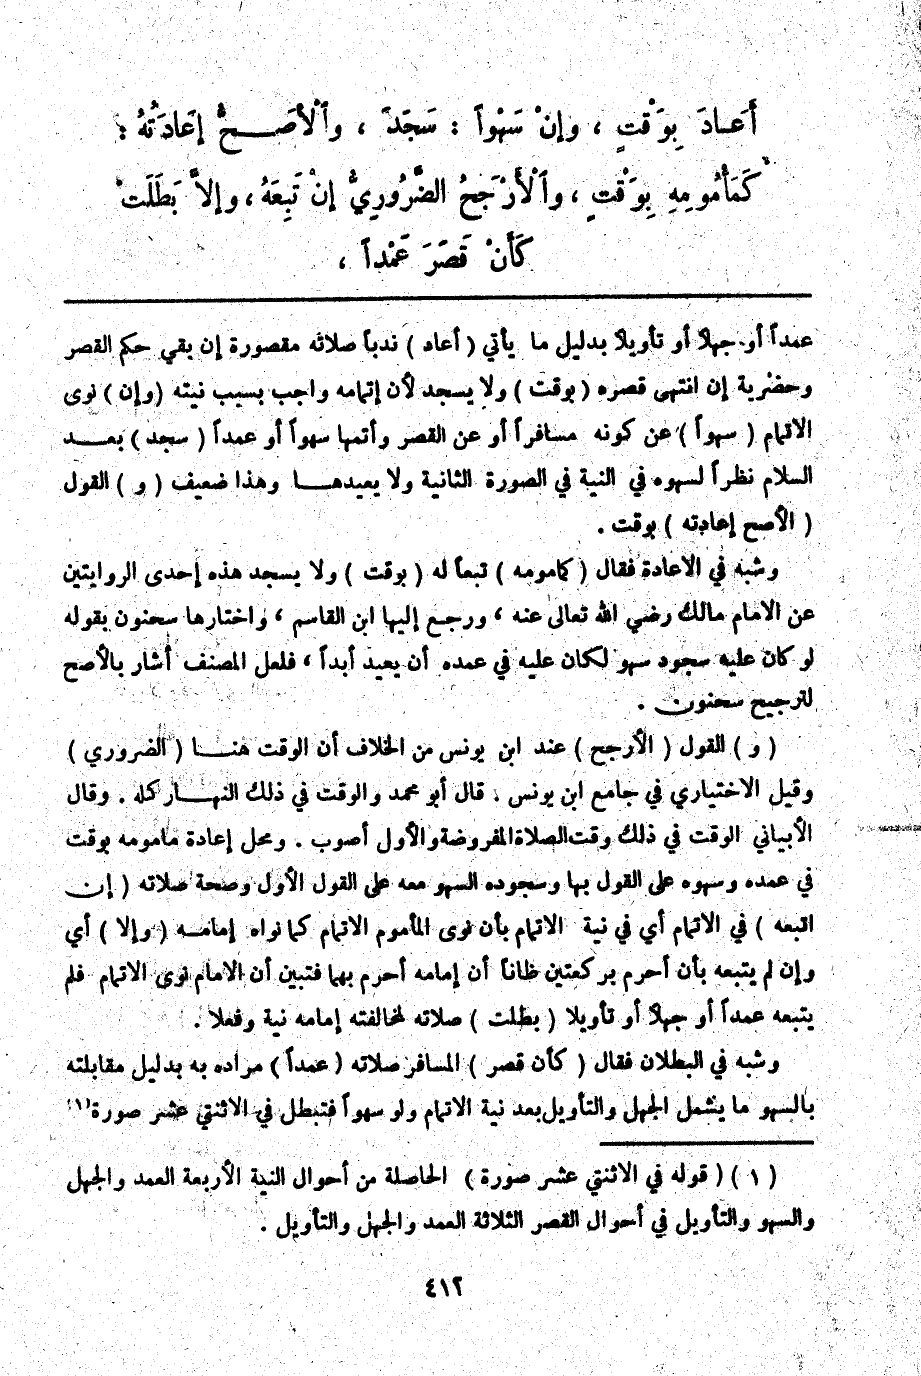 أَعَـادَ بِوَقْتٍ ، وإنْ سَهْواً : سَجَدَ ، وٱلْأَصَــحُّ إعَادَتُهُ :
كَمَأْمُومِهِ بِوَقْتٍ ، وٱلْأَرْجَحُ الضَّرُورِيُّ إنْ تَبِعَهُ ، وإلاَّ بَطَلَتْ
كَأَنْ قَصَرَ عَمْداً ،
عمداً أو جهلاً أو تأويلاً بدليل ما يأتي ( أعاد ) ندباً صلاته مقصورة إن بقي حكم القصر
وحضرية إن انتهى قصره ( بوقت ) ولا يسجد لأن إتمامه واجب بسبب نيته ( وإن ) نوى
الاتمام ( سهواً ) عن كونه مسافراً أو عن القصر وأتمها سهواً أو عمداً ( سجد ) بعــد
السلام نظراً لسهوه في النية في الصورة الثانية ولا يعيدهــا وهذا ضعيف ( و ) القول
( الأصح إعادته ) بوقت .
وشبه في الاعادة فقال ( كمامومه ) تبعاً له ( بوقت ) ولا يسجد هذه إحدى الروايتين
عن الامام مالك رضي الله تعالى عنه ، ورجع إليها ابن القاسم ، واختارها سحنون بقوله
لو كان عليه سجود سهو لكان عليه في عمده أن يعيد أبداً ، فلعل المصنف أشار بالأصح
لترجيح سحنون .
( و ) القول ( الأرجح ) عند ابن يونس من الخلاف أن الوقت هنــا ( الضروري )
وقيل الاختياري في جامع ابن يونس . قال أبو محمد والوقت في ذلك النهــار كله . وقال
الأبياني الوقت في ذلك وقت الصلاة المفروضة والأول أصوب . ومحل إعادة مامومه بوقت
في عمده وسهوه على القول بها وسجوده السهو معه على القول الأول وصحة صلاته ( إن
اتبعه ) في الاتمام أي في نية الاتمام بأن نوى المأموم الاتمام كما نواه إمامــه ( وإلا ) أي
وإن لم يتبعه بأن أحرم بركعتين ظاناً أن إمامه أحرم بهما فتبين أن الامام نوى الاتمام فلم
يتبعه عمداً أو جهلاً أو تأويلا ( بطلت ) صلاته لمخالفته إمامه نية وفعلا .
وشبه في البطلان فقال ( كأن قصر ) المسافر صلاته ( عمداً ) مراده به بدليل مقابلته
بالسهو ما يشمل الجهل والتأويل بعد نية الاتمام ولو سهواً فتبطل في الاثنتي عشر صورة (١)
( ١ ) ( قوله في الاثنتي عشر صورة ) الحاصلة من أحوال النية الأربعة العمد والجهل
والسهو والتأويل في أحوال القصر الثلاثة العمد والجهل والتأويل .
٤١٢